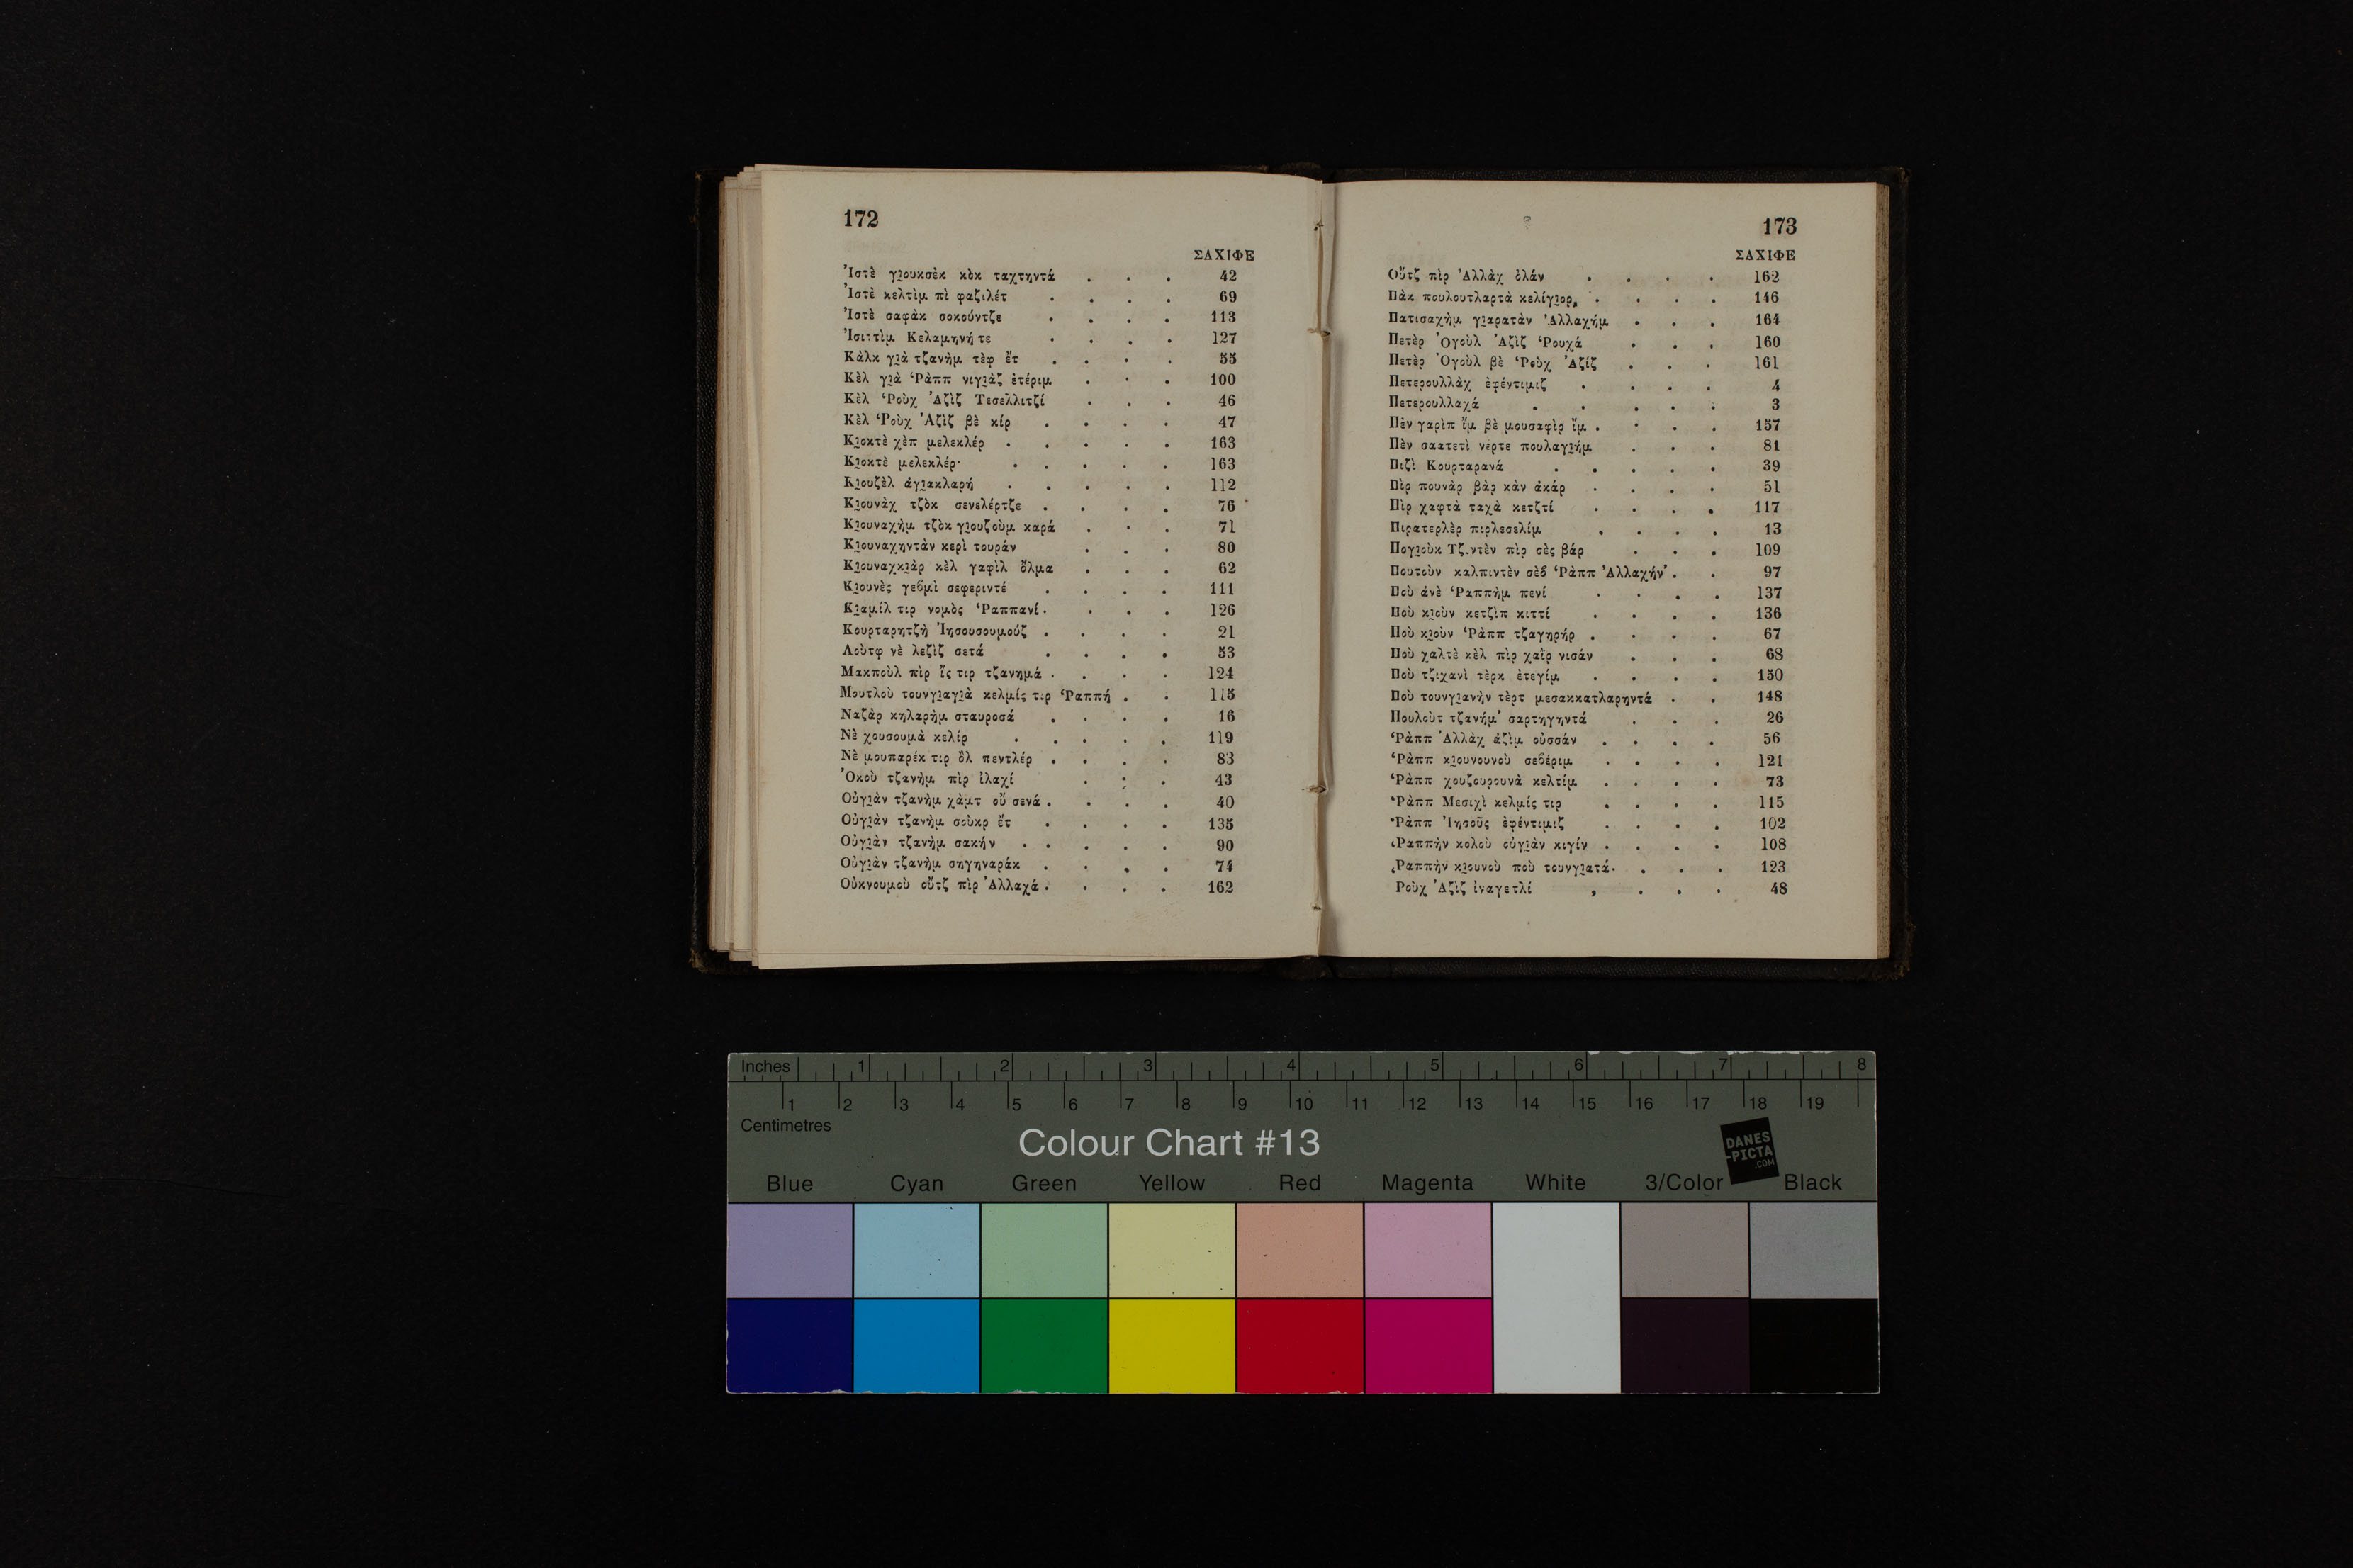 172
ΣΑΧΙΦΕ
Ἰστὲ γιουκσὲκ κὸκ ταχτηντά . . . 42
Ἰστὲ κελτὶμ πὶ φαζιλέτ . . . . 69
Ἰστὲ σαφὰκ σοκούντζε . . . . 113
Ἰσιττὶμ Κελαμηνή τε . . . . 127
Κὰλκ γιὰ τζανὴμ τὲφ ἔτ . . . . 55
Κὲλ γιὰ Ῥὰππ νιγιὰζ ἐτέριμ . . . 100
Κὲλ Ῥοὺχ Ἀζὶζ Τεσελλιτζί . . . 46
Κὲλ Ῥοὺχ Ἀζὶζ βὲ κίρ . . . . 47
Κιοκτὲ χὲπ μελεκλέρ . . . . . 163
Κιοκτὲ μελεκλέρ· . . . . . 163
Κιουζὲλ ἀγιακλαρή . . . . . 112
Κιουνὰχ τζὸκ σενελέρτζε . . . . 76
Κιουναχὴμ τζὸκ γιουζοὺμ καρά . . . 71
Κιουναχηντὰν κερὶ τουράν . . . 80
Κιουναχκιὰρ κὲλ γαφὶλ ὄλμα . . . 62
Κιουνὲς γεϐμὶ σεφεριντέ . . . . 111
Κιαμίλ τιρ νομὸς Ῥαππανί . . . . 126
Κουρταρητζὴ Ἰησουσουμούζ . . . . 21
Λοὺτφ νὲ λεζὶζ σετά . . . . 53
Μακποὺλ πὶρ ἴς τιρ τζανημά . . . . 124
Μουτλοὺ τουνγιαγιὰ κελμίς τιρ Ῥαππή . . 115
Ναζὰρ κηλαρὴμ σταυροσά . . . . 16
Νὲ χουσουμὰ κελίρ . . . . . 119
Νὲ μουπαρέκ τιρ ὂλ πεντλέρ . . . . 83
Ὀκοὺ τζανὴμ πὶρ ἰλαχί . . . 43
Οὐγιὰν τζανὴμ χὰμτ οὔ σενά . . . . 40
Οὐγιὰν τζανὴμ σοὺκρ ἔτ . . . . 135
Οὐγιὰν τζανὴμ σακήν . . . . . 90
Οὐγιὰν τζανὴμ σηγηναράκ . . . . 74
Οὐκνουμοὺ οὔτζ πὶρ Ἀλλαχά . . . . 162
173
ΣΑΧΙΦΕ
Οὔτζ πὶρ Ἀλλὰχ ὀλάν . . . . 162
Πὰκ πουλουτλαρτὰ κελίγιορ, . . . . 146
Πατισαχὴμ γιαρατὰν Ἀλλαχήμ . . . 164
Πετὲρ Ὀγοὺλ Ἀζὶζ Ῥουχά . . . 160
Πετὲρ Ὀγοὺλ βὲ Ῥοὺχ Ἀζίζ . . . 161
Πετερουλλὰχ ἐφέντιμιζ . . . . 4
Πετερουλλαχά . . . . . 3
Πὲν γαρὶπ ἴμ βὲ μουσαφὶρ ἴμ . . . . 157
Πὲν σαατετὶ νέρτε πουλαγιήμ . . . 81
Πιζὶ Κουρταρανά . . . . . 39
Πὶρ πουνὰρ βὰρ κὰν ἀκάρ . . . . 51
Πὶρ χαφτὰ ταχὰ κετζτί . . . . 117
Πιρατερλὲρ πιρλεσελίμ . . . . 13
Πογιοὺκ Τζ.ντὲν πὶρ σὲς βάρ . . . 109
Πουτοὺν καλπιντὲν σὲϐ Ῥὰππ Ἀλλαχήν . . 97
Ποὺ ἀνὲ Ῥαππὴμ πενί . . . . 137
Ποὺ κιοὺν κετζὶπ κιττί . . . . 136
Ποὺ κιοὺν Ῥὰππ τζαγηρήρ . . . . 67
Ποὺ χαλτὲ κὲλ πὶρ χαῒρ νισάν . . . 68
Ποὺ τζιχανὶ τὲρκ ἐτεγίμ . . . . 150
Ποὺ τουνγιανὴν τὲρτ μεσακκατλαρηντά . . 148
Πουλοὺτ τζανήμ σαρτηγηντά . . . 26
Ῥὰππ Ἀλλὰχ ἀζὶμ οὐσσάν . . . . 56
Ῥὰππ κιουνουνοὺ σεϐέριμ . . . . 121
Ῥὰππ χουζουρουνὰ κελτίμ . . . . 73
Ῥὰππ Μεσιχὶ κελμίς τιρ . . . . 115
Ῥὰππ Ἰησοῦς ἐφέντιμιζ . . . . 102
Ῥαππὴν κολοὺ οὐγιὰν κιγίν . . . . 108
Ῥαππὴν κιουνοὺ ποὺ τουνγιατά . . . . 123
Ροὺχ Ἀζὶζ ἰναγετλί , . . . 48
Inches 1 2 3 4 5 6 7 8
1 2 3 4 5 6 7 8 9 10 11 12 13 14 15 16 17 18 19
Centimetres
Colour Chart #13
DANES
-PICTA
.COM
Blue Cyan Green Yellow Red Magenta White 3/Color Black